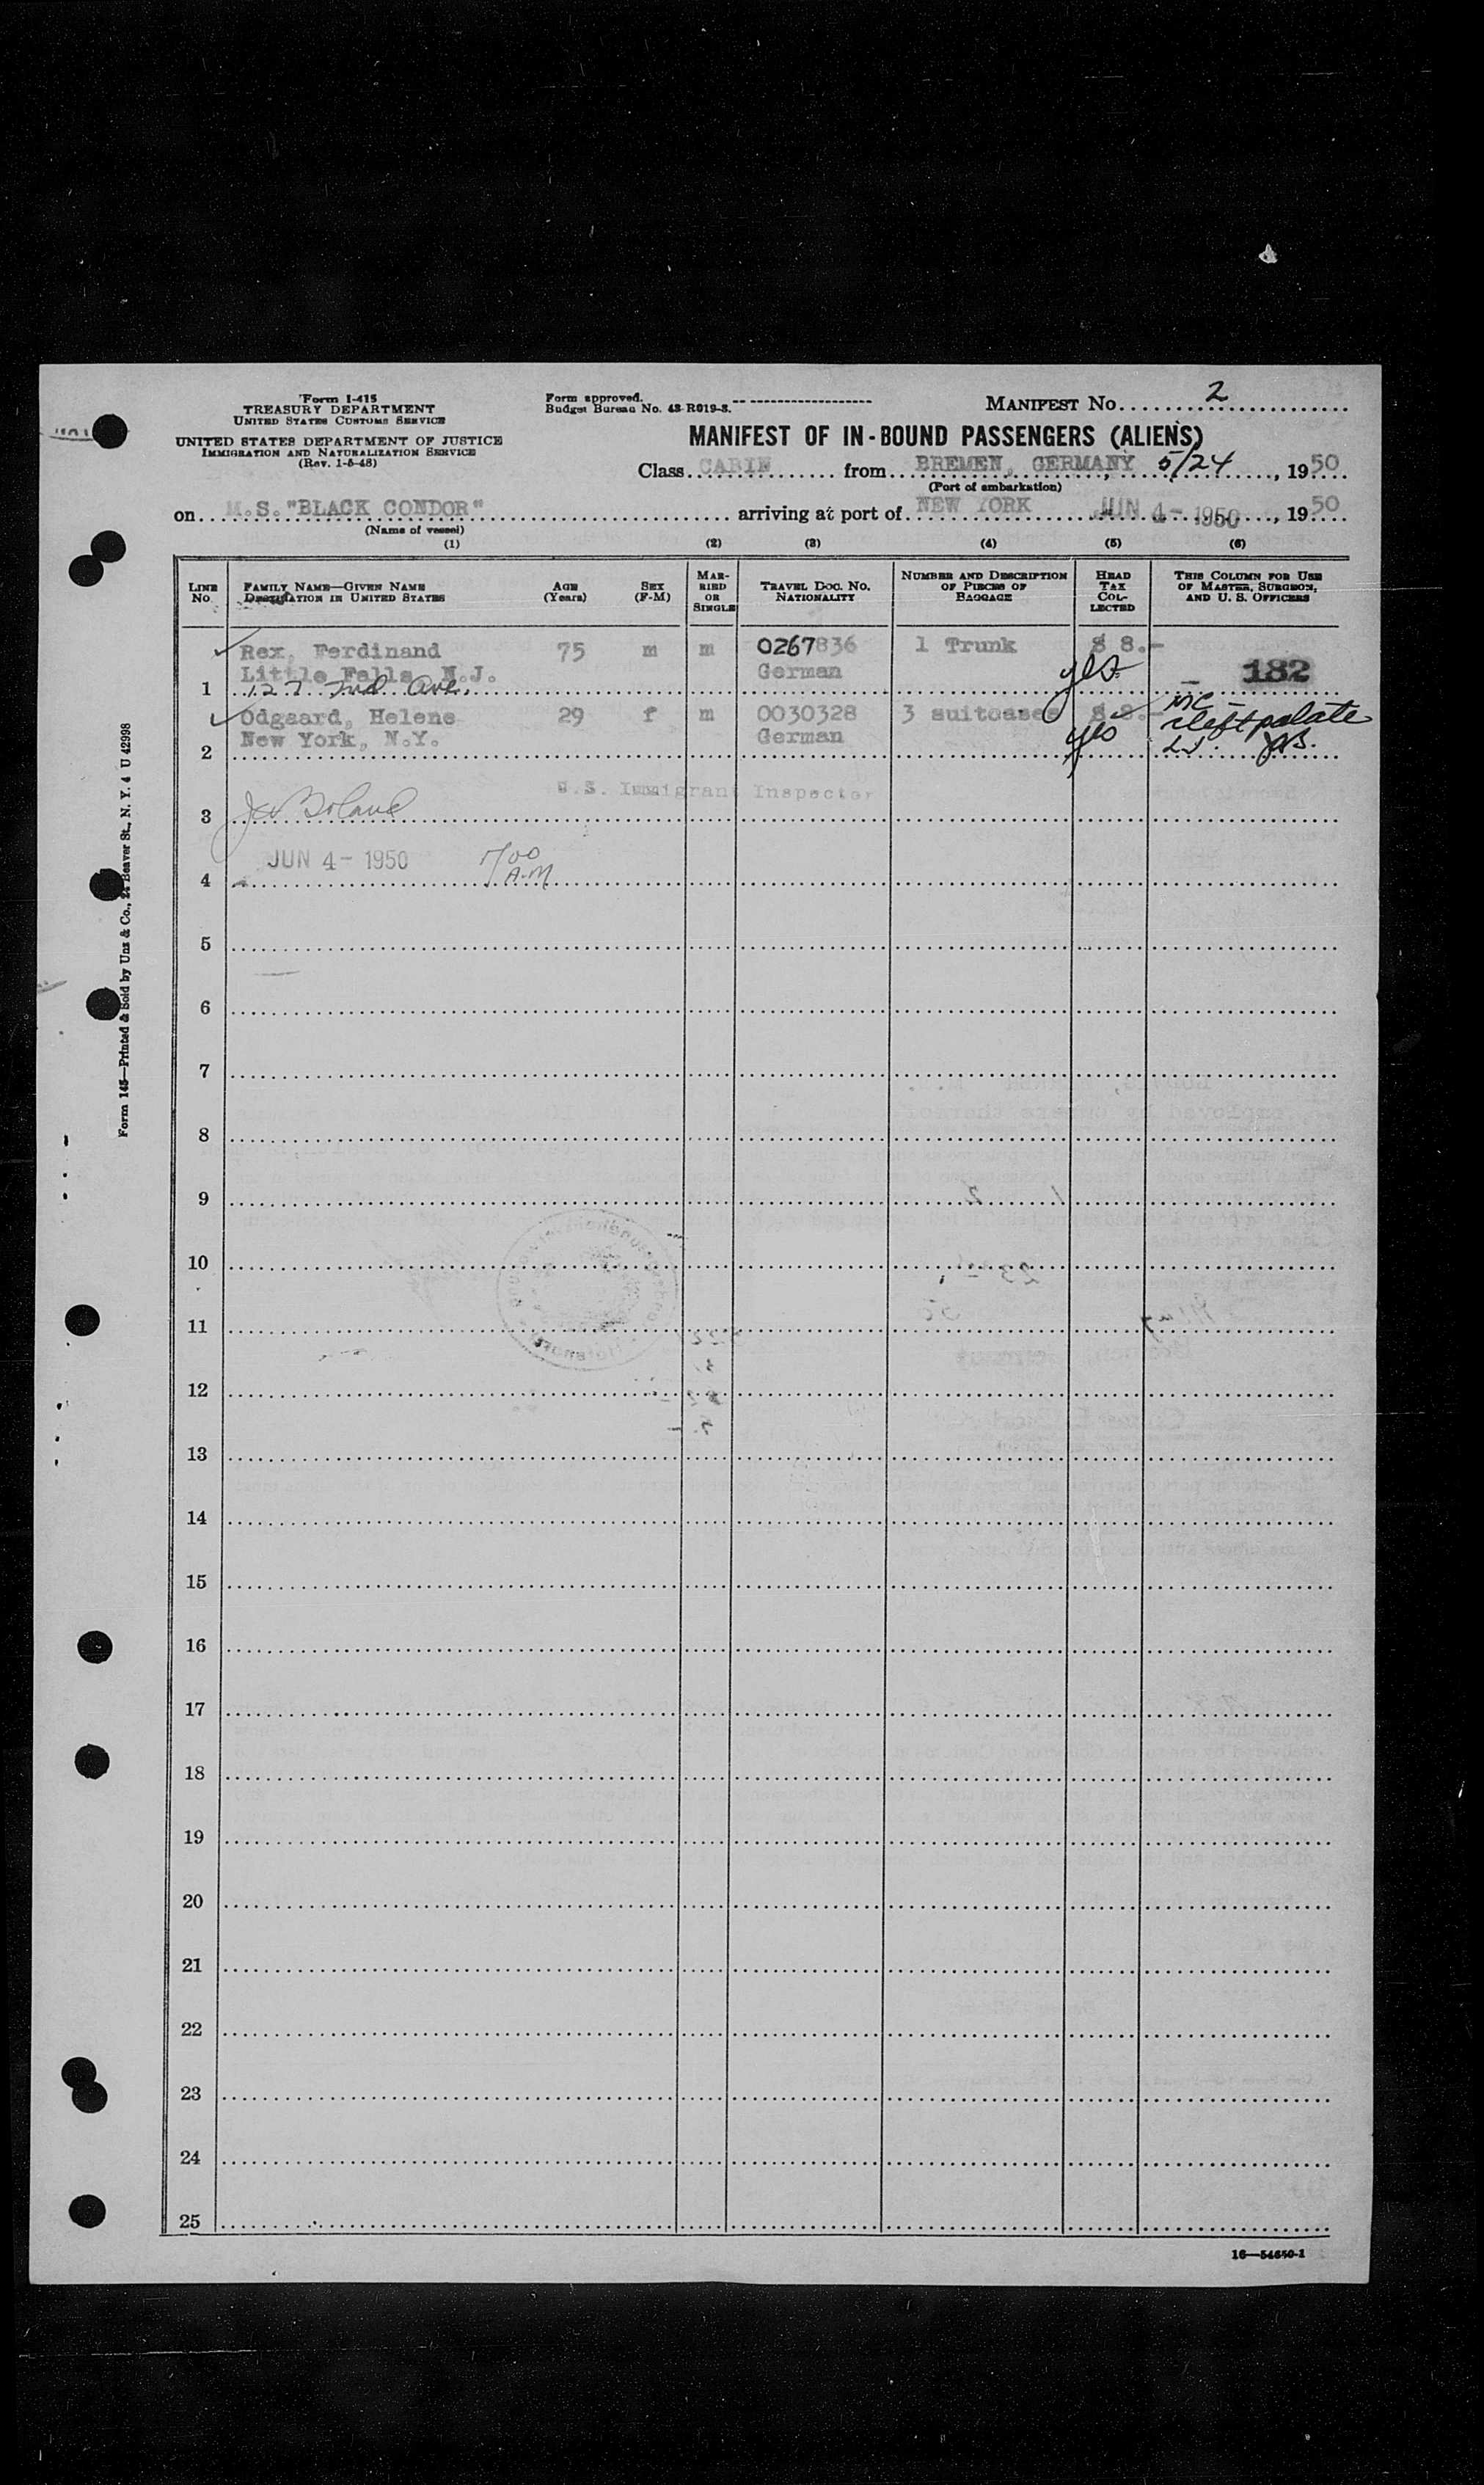 Form I-415
TREASURY DEPARTMENT
UNITED STATES CUSTOMS SERVICE
UNITED STATES DEPARTMENT OF JUSTICE
IMMIGRATION AND NATURALIZATION SERVICE
(Rev. 1-5-48)
Form approved.
Budget Bureau No. 43-R019-3.
MANIFEST No. 2
MANIFEST OF IN-BOUND PASSENGERS (ALIENS)
Class CABIN from BREMEN, GERMANY, 5/24, 1950
(Port of embarkation)
on M.S. "BLACK CONDOR" arriving at port of NEW YORK JUN 4 - 1950, 1950
(Name of vessel)
(1) (2) (3) (4) (5) (6)
LINE No. FAMILY NAME—GIVEN NAME DESTINATION IN UNITED STATES AGE (Years) SEX (F-M) MARRIED OR SINGLE TRAVEL DOC. NO. NATIONALITY NUMBER AND DESCRIPTION OF PIECES OF BAGGAGE HEAD TAX COLLECTED THIS COLUMN FOR USE OF MASTER, SURGEON, AND U. S. OFFICERS
Rex, Ferdinand 75 m m 0267836 1 Trunk $ 8.-
Little Falls, N.J. German yes 182
1 127 2nd Ave.
Odgaard, Helene 29 f m 0030328 3 suitcases $ 8.- cleft palate
New York, N.Y. German yes
2
U.S. Immigrant Inspector
3
JUN 4 - 1950 700 A.M
4
5
6
7
8
9
10
11
12
13
14
15
16
17
18
19
20
21
22
23
24
25
16—54650-1
Form 145—Printed & Sold by Unz & Co., 24 Beaver St., N. Y. 4 U 42998